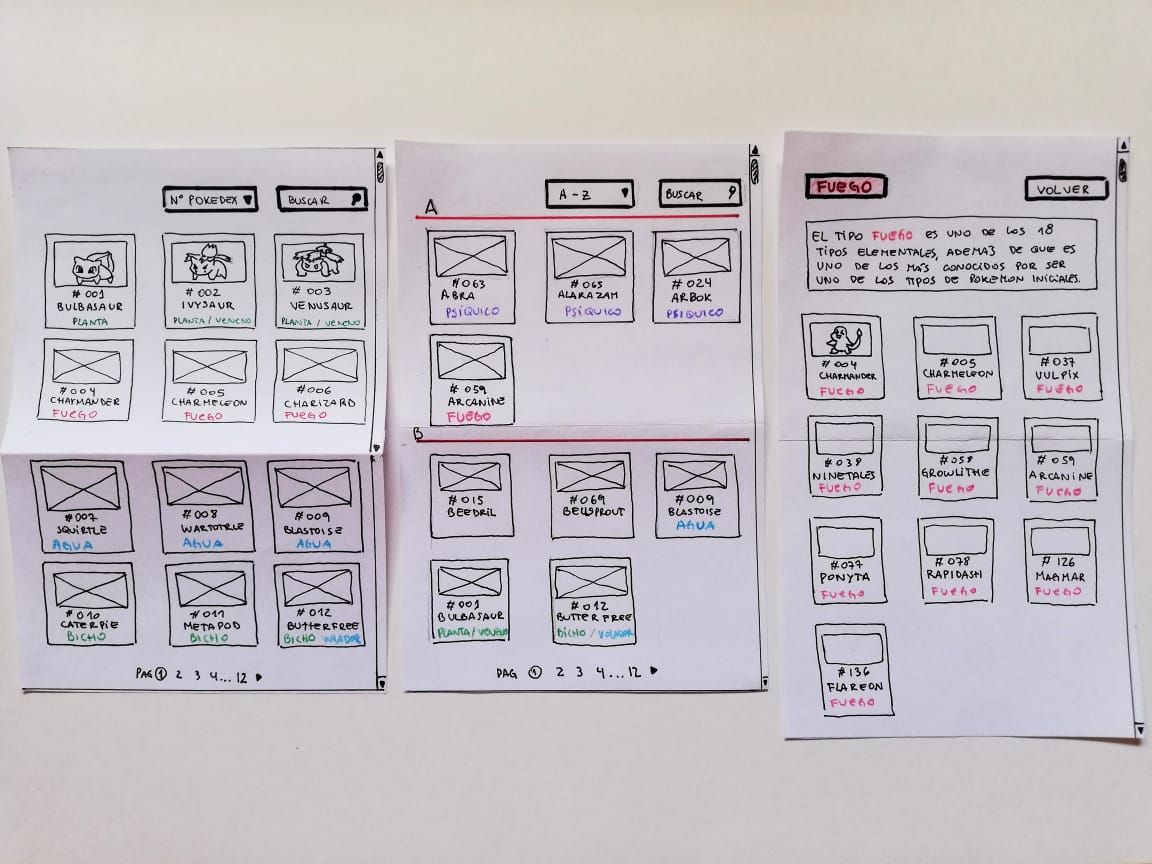 Nº POKEDEX
BUSCAR
# 001
BULBASAUR
PLANTA
# 002
IVYSAUR
PLANTA / VENENO
# 003
VENUSAUR
PLANTA / VENENO
# 004
CHARMANDER
FUEGO
# 005
CHARMELEON
FUEGO
# 006
CHARIZARD
FUEGO
# 007
SQUIRTLE
AGUA
# 008
WARTOTRLE
AGUA
# 009
BLASTOISE
AGUA
# 010
CATERPIE
BICHO
# 011
METAPOD
BICHO
# 012
BUTTERFREE
BICHO VOLADOR
PAG 1 2 3 4...12
A - Z
BUSCAR
A
# 063
ABRA
PSÍQUICO
# 065
ALARAZAM
PSÍQUICO
# 024
ARBOK
PSÍQUICO
# 059
ARCANINE
FUEGO
B
# 015
BEEDRIL
# 069
BELLSPROUT
# 009
BLASTOISE
AGUA
# 001
BULBASAUR
PLANTA / VENENO
# 012
BUTTERFREE
BICHO / VOLADOR
PAG 1 2 3 4...12
FUEGO
VOLVER
EL TIPO FUEGO ES UNO DE LOS 18
TIPOS ELEMENTALES, ADEMÁS DE QUE ES
UNO DE LOS MÁS CONOCIDOS POR SER
UNO DE LOS TIPOS DE POKEMON INICIALES.
# 004
CHARMANDER
FUEGO
# 005
CHARMELEON
FUEGO
# 037
VULPIX
FUEGO
# 038
NINETALES
FUEGO
# 058
GROWLITHE
FUEGO
# 059
ARCANINE
FUEGO
# 077
PONYTA
FUEGO
# 078
RAPIDASH
FUEGO
# 126
MAGMAR
FUEGO
# 136
FLAREON
FUEGO